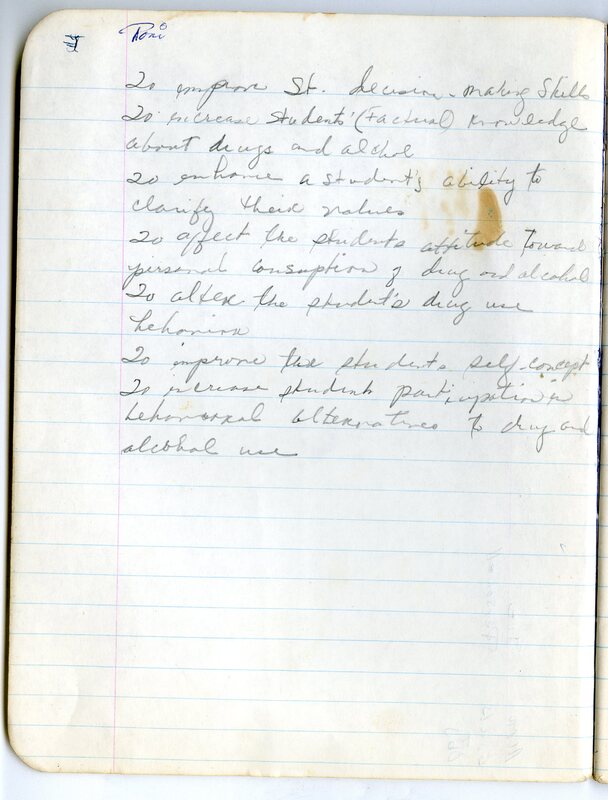 Toni
To improve St. decision-making skills
To increase students' (Factual) knowledge
about drugs and alchol
To enhance a student's ability to
clarify their values
To affect the students attitude toward
personal consuption of drug and alcohol
To alter the student's drug use
behavior
To improve the students self-concept
To increase students participation in
behavioral alternatives to drug and
alcohol use